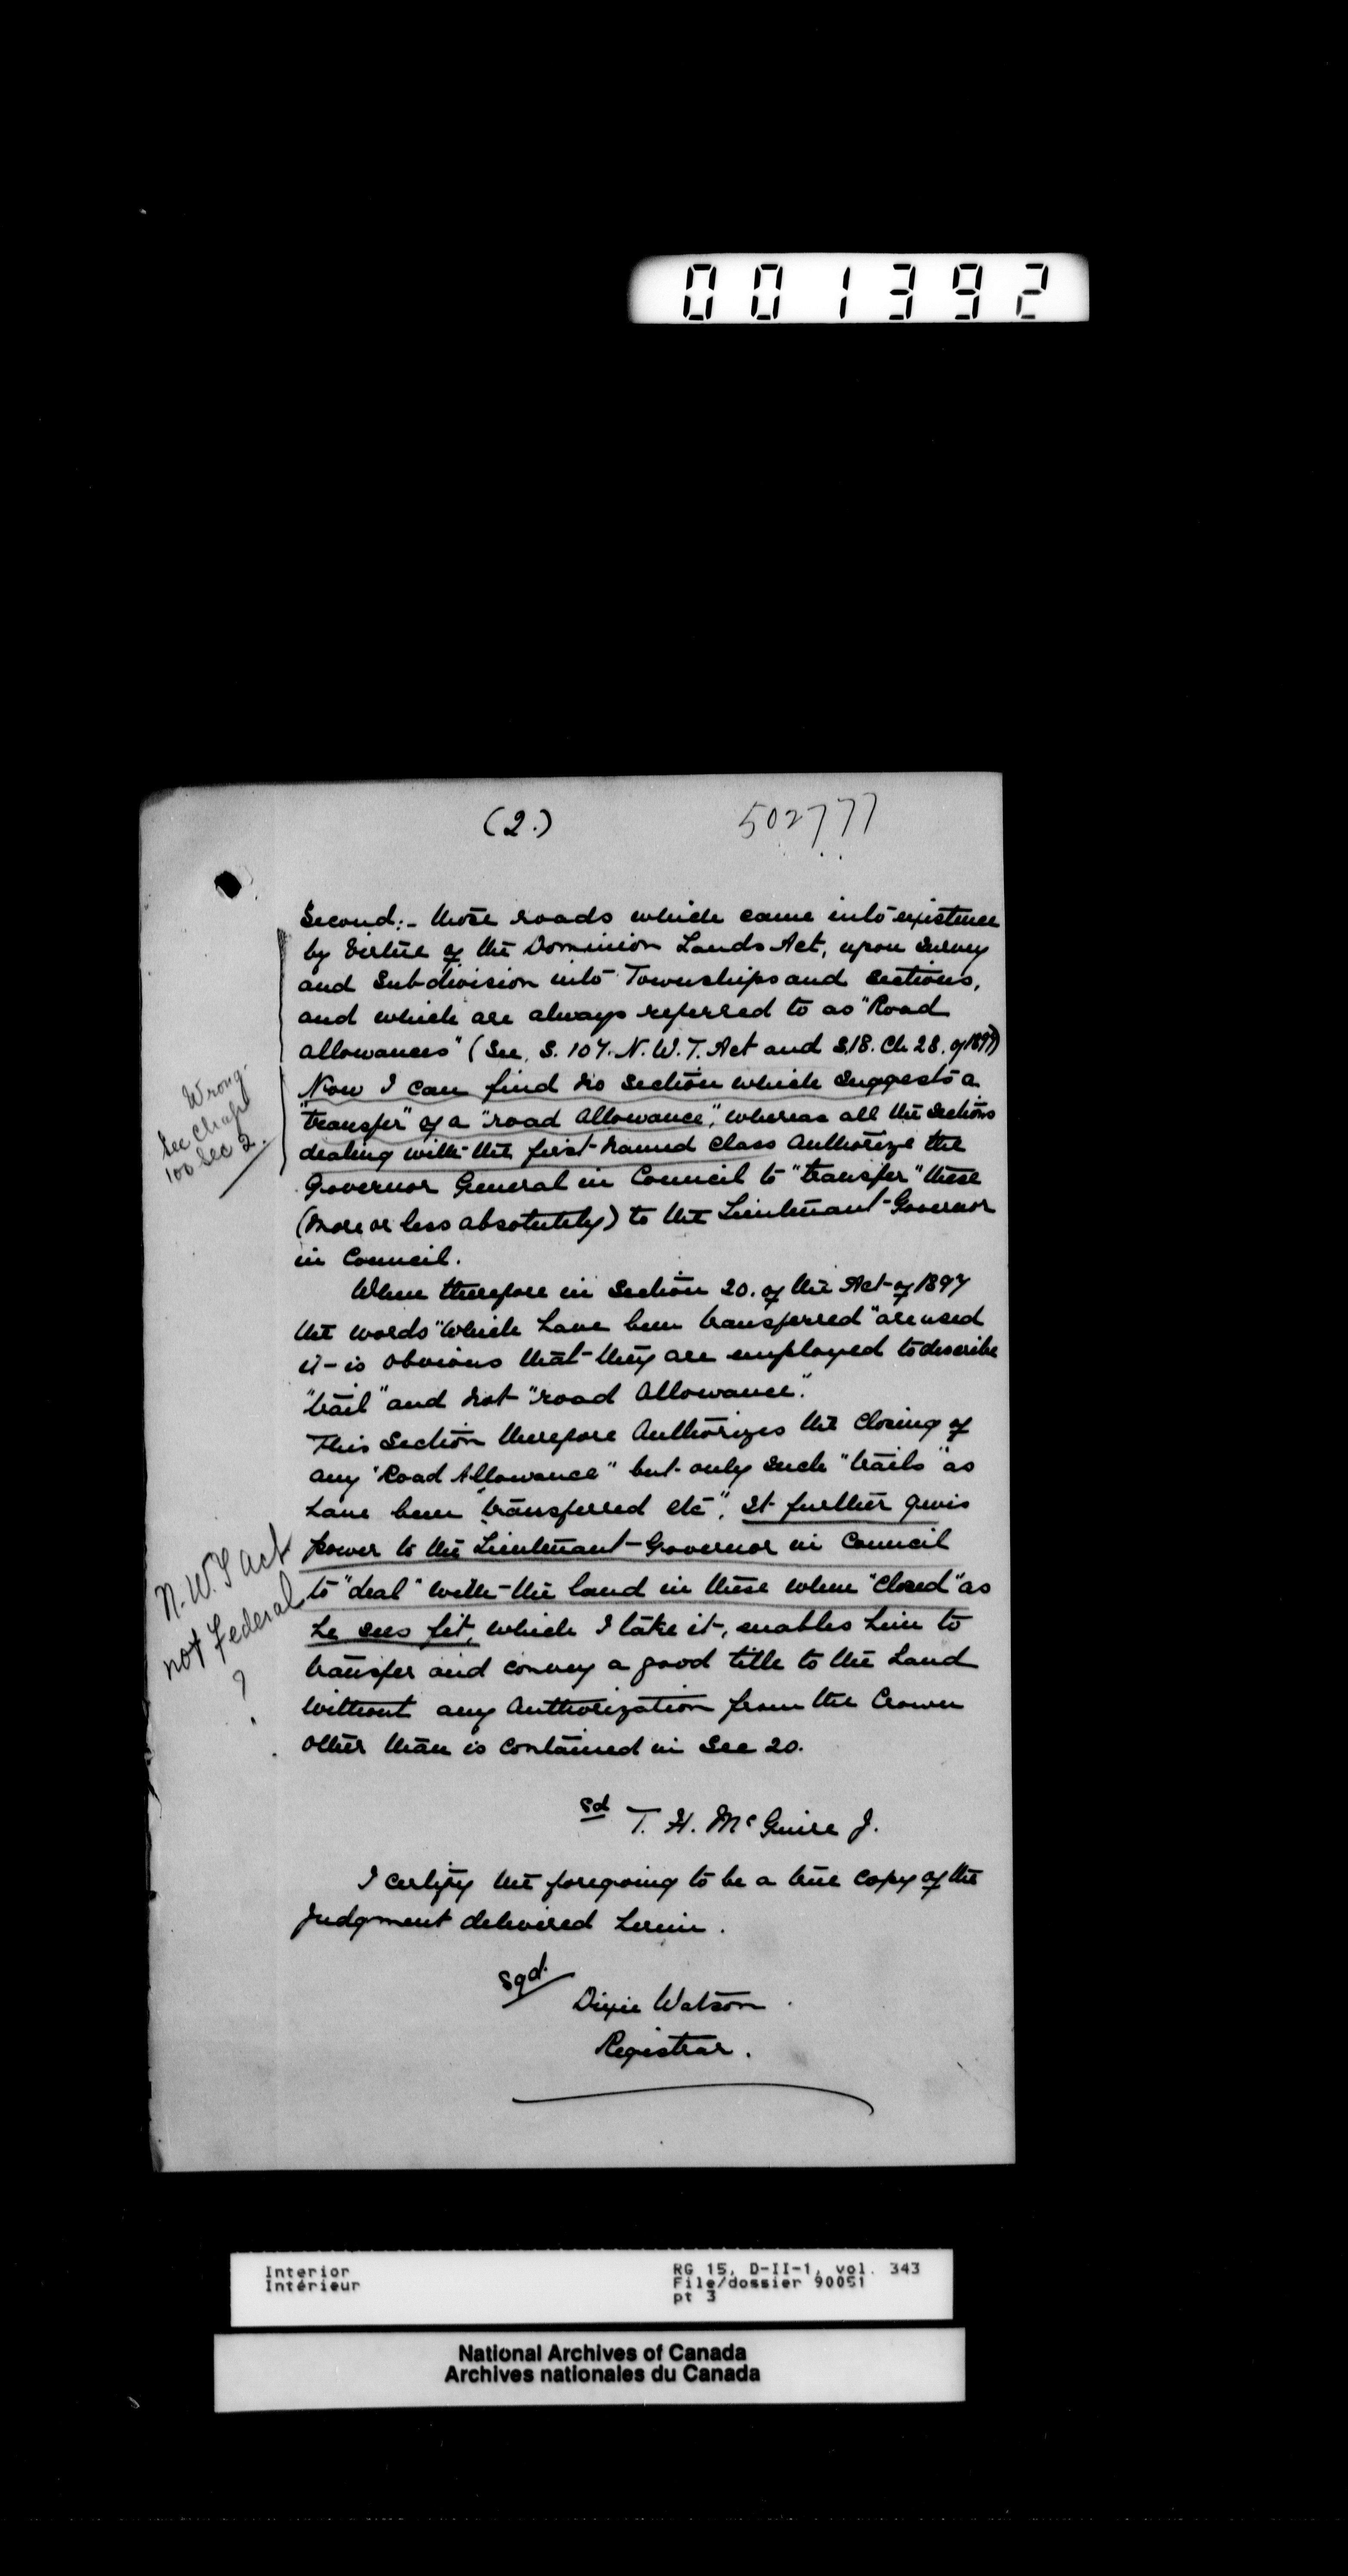 001392
(2.)
502777
Second:- those roads which came into existence
by virtue of the Dominion Lands Act, upon survey
and Subdivision into Townships and Sections,
and which are always referred to as "Road
allowances" (See, S. 107. N. W. T. Act and S.18. Ch 28. of 1897)
Now I can find no section which suggests a
"transfer" of a "road allowance", whereas all the sections
dealing with the first-named class authorize the
Governor General in Council to "transfer" these
(more or less absolutely) to the Lieutenant-Governor
in Council.
Wrong-
See Chapt
100 Sec 2.
When therefore in Section 20. of the Act of 1897
the words "which have been transferred" are used
it is obvious that they are employed to describe
"trail" and not "road allowance".
This Section therefore authorizes the closing of
any "Road Allowance" but only such "trails" as
have been "transferred etc". It further gives
power to the Lieutenant-Governor in Council
to "deal" with the land in these when "closed" as
he sees fit, which I take it, enables him to
transfer and convey a good title to the Land
without any authorization from the Crown
other than is contained in Sec 20.
N.W.T Act
not Federal
?
sd T. H. McGuire J.
I certify the foregoing to be a true copy of the
Judgment delivered herein.
Sgd.
Dixie Watson
Registrar.
Interior
Intérieur
RG 15, D-II-1, vol. 343
File/dossier 90051
pt 3
National Archives of Canada
Archives nationales du Canada